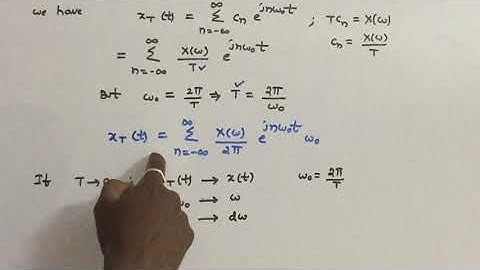 we have x_T(t) = ∞ Σ n=-∞ c_n e^{jnω₀t} ; Tc_n = X(ω)
c_n = X(ω)/T
= ∞ Σ n=-∞ X(ω)/T e^{jnω₀t}
But ω₀ = 2π/T ⇒ T = 2π/ω₀
x_T(t) = ∞ Σ n=-∞ X(ω)/2π e^{jnω₀t} ω₀
If T → _T(t) → x(t) ω₀ = 2π/T
ω₀ → ω
→ dω